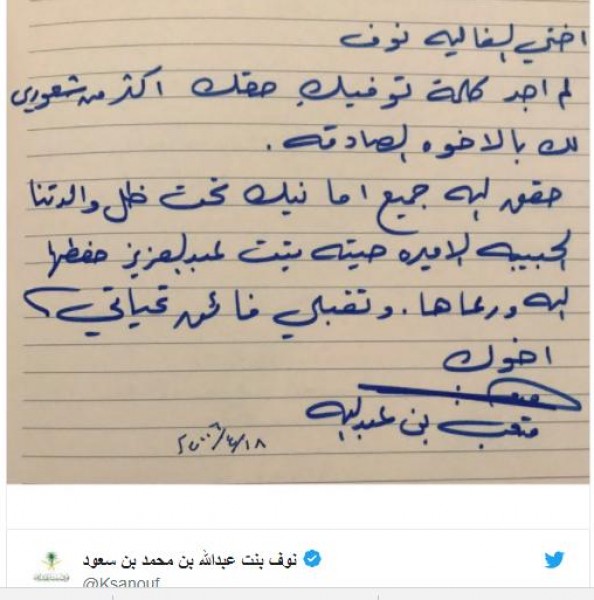 اختي الغاليه نوف
لم اجد كلمة توفيك حقك اكثر من شعوري
لك بالاخوه الصادقه.
حقق الله جميع امانيك تحت ظل والدتنا
الحبيبه الاميره صيته بنت عبدالعزيز حفظها
الله ورعاها. وتقبلي فائق تحياتي؟
اخوك
متعب بن عبدالله
٢٠٠٦/٤/١٨
نوف بنت عبدالله بن محمد بن سعود
@Ksanouf